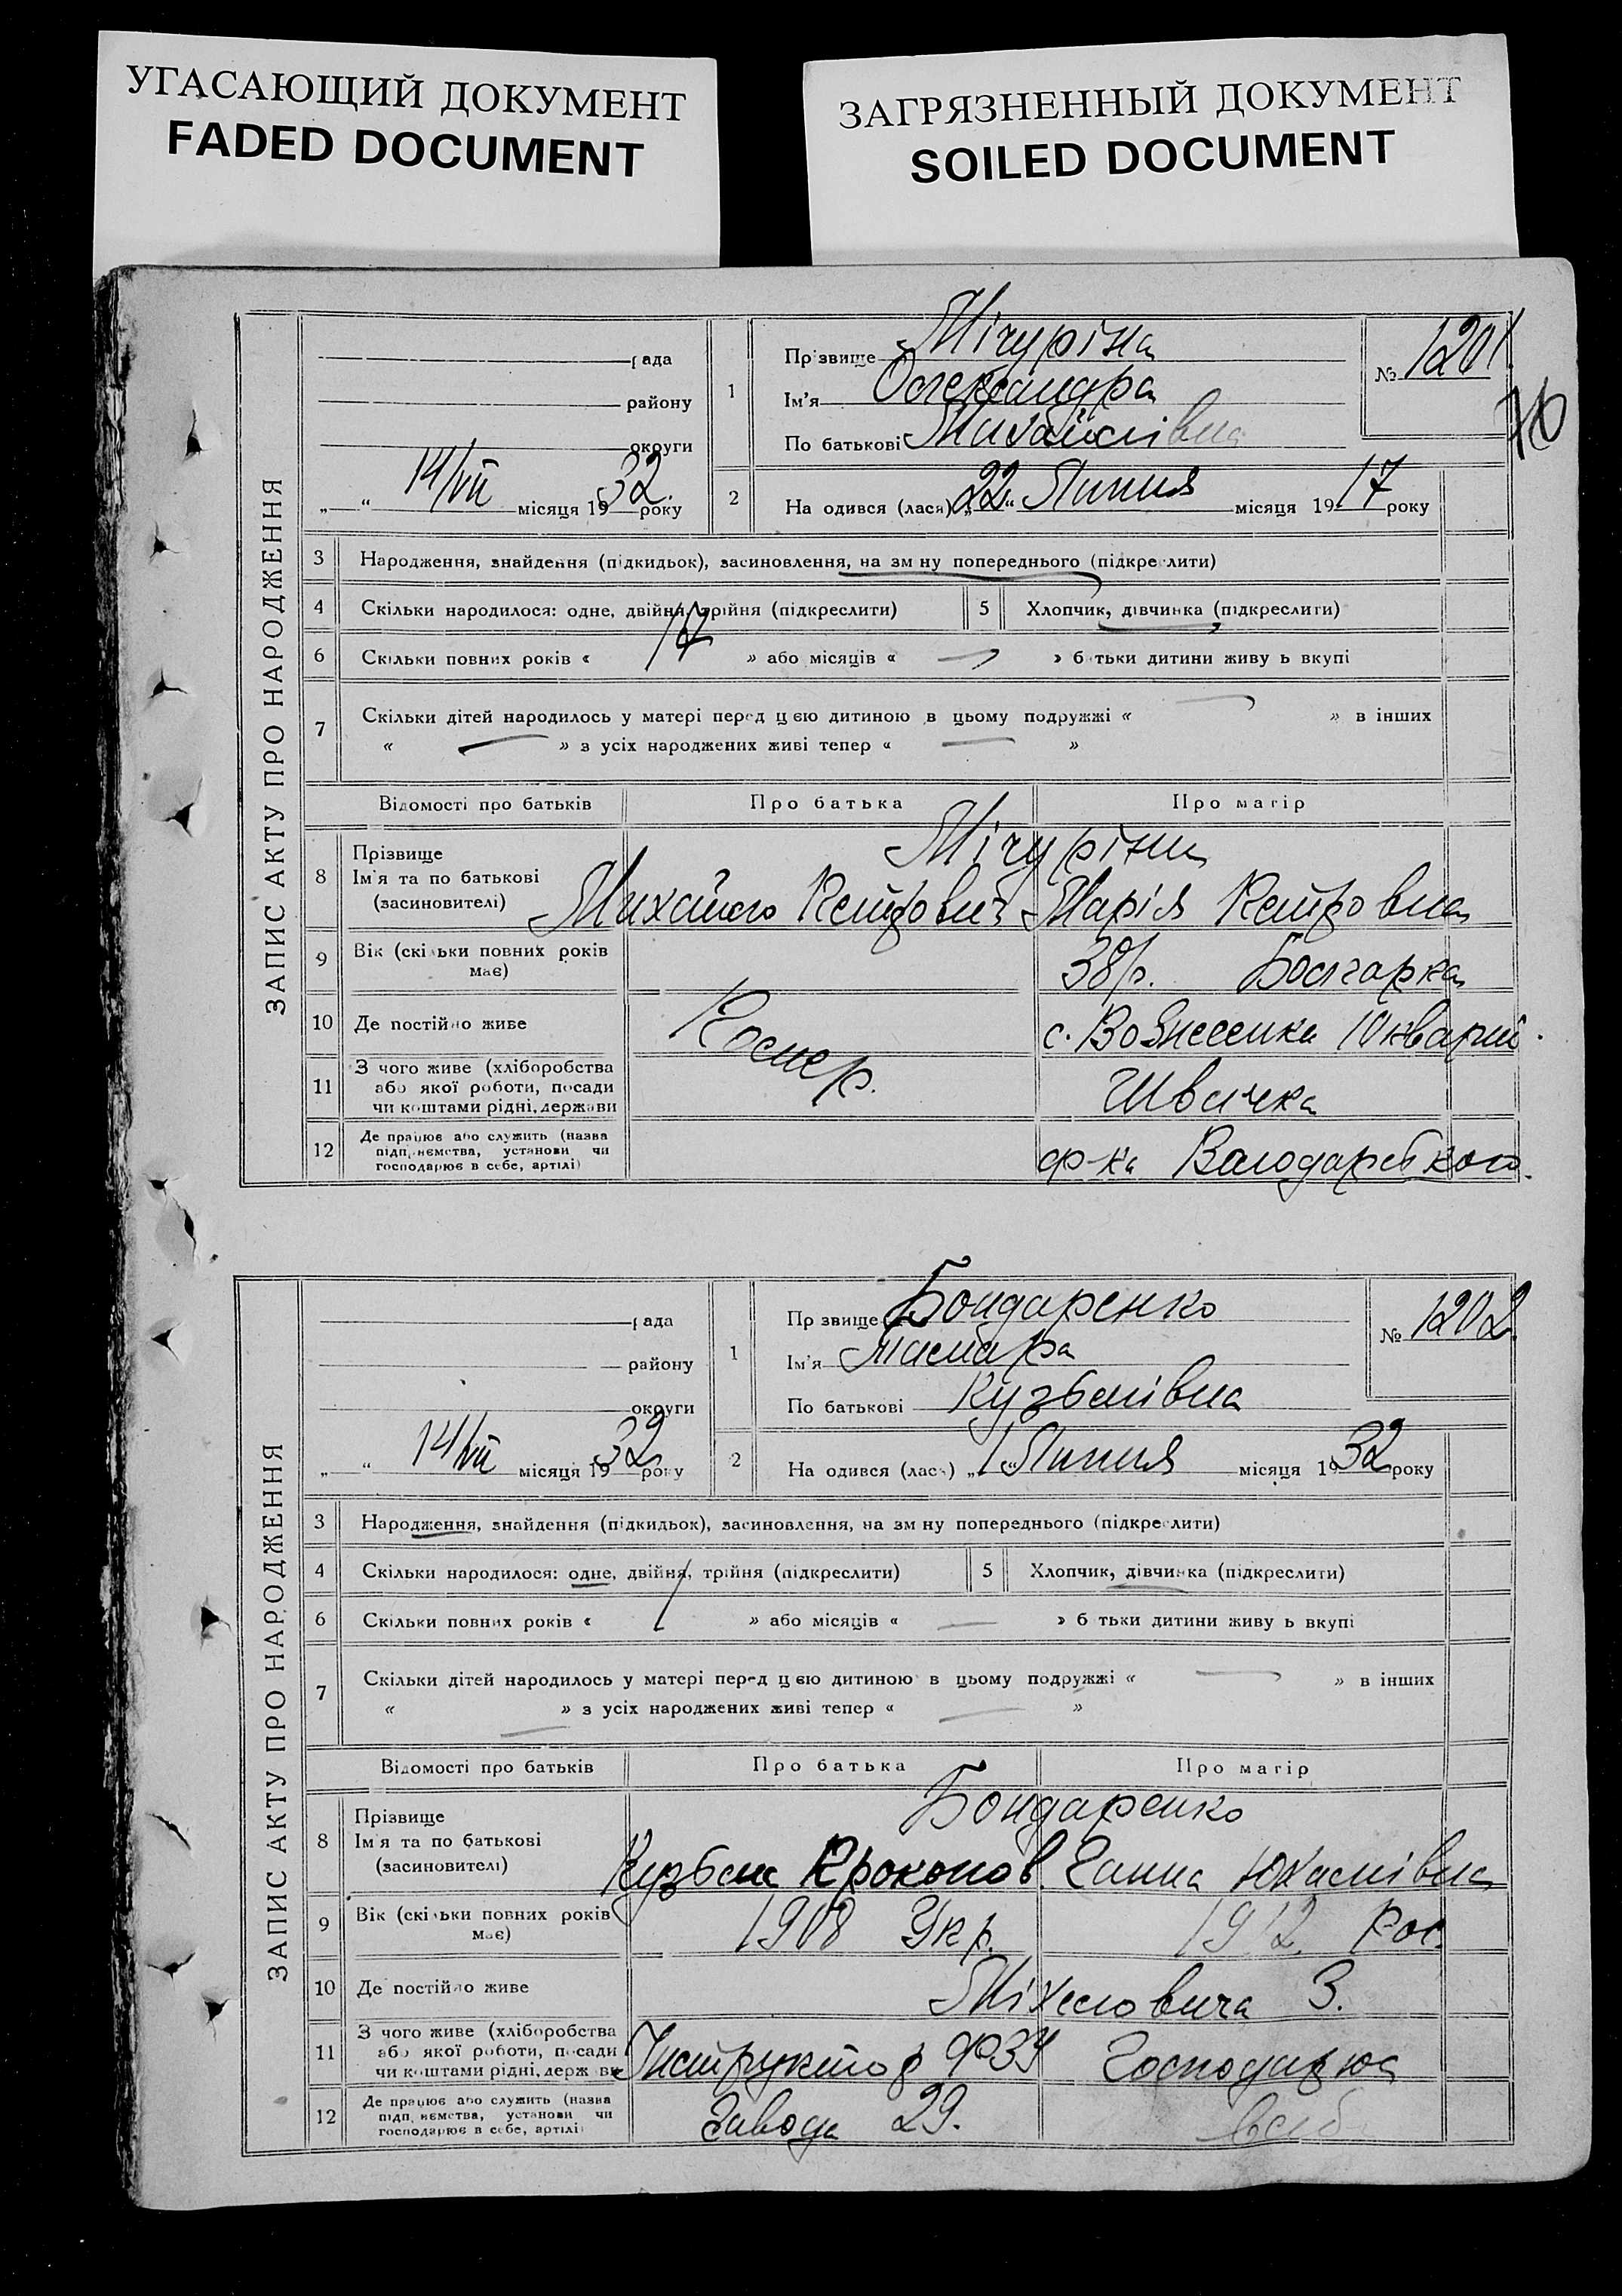 УГАСАЮЩИЙ ДОКУМЕНТ
FADED DOCUMENT
ЗАГРЯЗНЕННЫЙ ДОКУМЕНТ
SOILED DOCUMENT
ЗАПИС АКТУ ПРО НАРОДЖЕННЯ
рада
району
округи
„ “ 14/VII місяця 19 32. року
1
Прізвище Мічуріна
Ім'я Олександра
По батькові Михайлівна
№ 1201.
76
2
На одився (лася) „22“ Липня місяця 19 17 року
3 Народження, знайдення (підкидьок), засиновлення, на зм ну попереднього (підкреслити)
4 Скільки народилося: одне, двійня, трійня (підкреслити) 5 Хлопчик, дівчинка (підкреслити)
6 Скільки повних років « » або місяців « — » б тьки дитини живу ь вкупі
7 Скільки дітей народилось у матері перед ц єю дитиною в цьому подружжі « — » в інших
« — » з усіх народжених живі тепер « — »
Відомості про батьків Про батька Про матір
8 Прізвище
Ім'я та по батькові
(засиновителі)
Мічуріни
Михайло Петрович Марія Петровна
9 Вік (скільки повних років
має)
38 р. Болгарка
10 Де постійно живе
Помер.
с. Вознесенка 10 кварт.
11 З чого живе (хліборобства
або якої роботи, посади
чи коштами рідні, держави
Швачка
12 Де працює або служить (назва
підп иємства, установи чи
господарює в себе, артілі)
ф-ка Володарського.
ЗАПИС АКТУ ПРО НАРОДЖЕННЯ
рада
району
округи
„ “ 14/VII місяця 19 32 року
1
Пр звище Бондаренко
Ім'я Тамара
По батькові Кузьмівна
№ 1202.
2
На одився (лася) „1“ Липня місяця 19 32 року
3 Народження, знайдення (підкидьок), засиновлення, на зм ну попереднього (підкреслити)
4 Скільки народилося: одне, двійня, трійня (підкреслити) 5 Хлопчик, дівчинка (підкреслити)
6 Скільки повних років « 1 » або місяців « — » б тьки дитини живу ь вкупі
7 Скільки дітей народилось у матері перед ц єю дитиною в цьому подружжі « — » в інших
« — » з усіх народжених живі тепер « — »
Відомості про батьків Про батька Про матір
8 Прізвище
Ім'я та по батькові
(засиновителі)
Бондаренко
Кузьма Прокопов. Ганна Юхимівна
9 Вік (скільки повних років
має)
1908 Укр. 1912. Рос.
10 Де постійно живе
Міхеловича 3.
11 З чого живе (хліборобства
або якої роботи, посади
чи коштами рідні, держ ви
Інструктор ФЗУ Господарює
12 Де працює або служить (назва
підп иємства, установи чи
господарює в себе, артілі)
Завода 29.